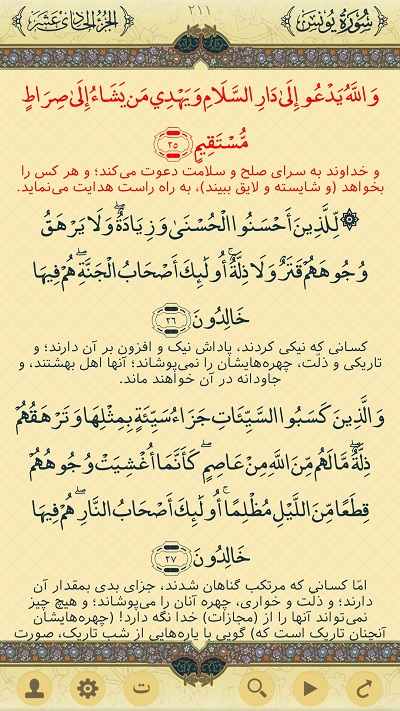 سُورَةُ يُونُسَ
٢١١
الجُزءُ الحَادِي عَشَر
وَاللَّهُ يَدْعُو إِلَىٰ دَارِ السَّلَامِ وَيَهْدِي مَن يَشَاءُ إِلَىٰ صِرَاطٍ
مُّسْتَقِيمٍ ٢٥
و خداوند به سرای صلح و سلامت دعوت می‌کند؛ و هر کس را
بخواهد (و شایسته و لایق ببیند)، به راه راست هدایت می‌نماید.
۞ لِّلَّذِينَ أَحْسَنُوا الْحُسْنَىٰ وَزِيَادَةٌ ۖ وَلَا يَرْهَقُ
وُجُوهَهُمْ قَتَرٌ وَلَا ذِلَّةٌ ۚ أُولَٰئِكَ أَصْحَابُ الْجَنَّةِ ۖ هُمْ فِيهَا
خَالِدُونَ ٢٦
کسانی که نیکی کردند، پاداش نیک و افزون بر آن دارند؛ و
تاریکی و ذلّت، چهره‌هایشان را نمی‌پوشاند؛ آنها اهل بهشتند، و
جاودانه در آن خواهند ماند.
وَالَّذِينَ كَسَبُوا السَّيِّئَاتِ جَزَاءُ سَيِّئَةٍ بِمِثْلِهَا وَتَرْهَقُهُمْ
ذِلَّةٌ ۖ مَّا لَهُم مِّنَ اللَّهِ مِنْ عَاصِمٍ ۖ كَأَنَّمَا أُغْشِيَتْ وُجُوهُهُمْ
قِطَعًا مِّنَ اللَّيْلِ مُظْلِمًا ۚ أُولَٰئِكَ أَصْحَابُ النَّارِ ۖ هُمْ فِيهَا
خَالِدُونَ ٢٧
امّا کسانی که مرتکب گناهان شدند، جزای بدی بمقدار آن
دارند؛ و ذلّت و خواری، چهره آنان را می‌پوشاند؛ و هیچ چیز
نمی‌تواند آنها را از (مجازات) خدا نگه دارد! (چهره‌هایشان
آنچنان تاریک است که) گویی با پاره‌هایی از شب تاریک، صورت
ت